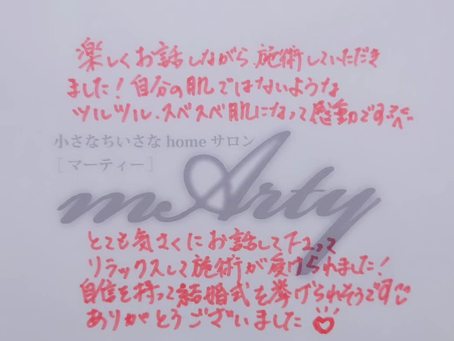 楽しくお話しながら施術していただき
ました！自分の肌ではないような
ツルツル、スベスベ肌になって感動です
小さなちいさな home サロン
[ マーティー ]
mArty
とても気さくにお話して下さって
リラックスして施術が受けられました！
自信を持って結婚式を挙げられそうです
ありがとうございました